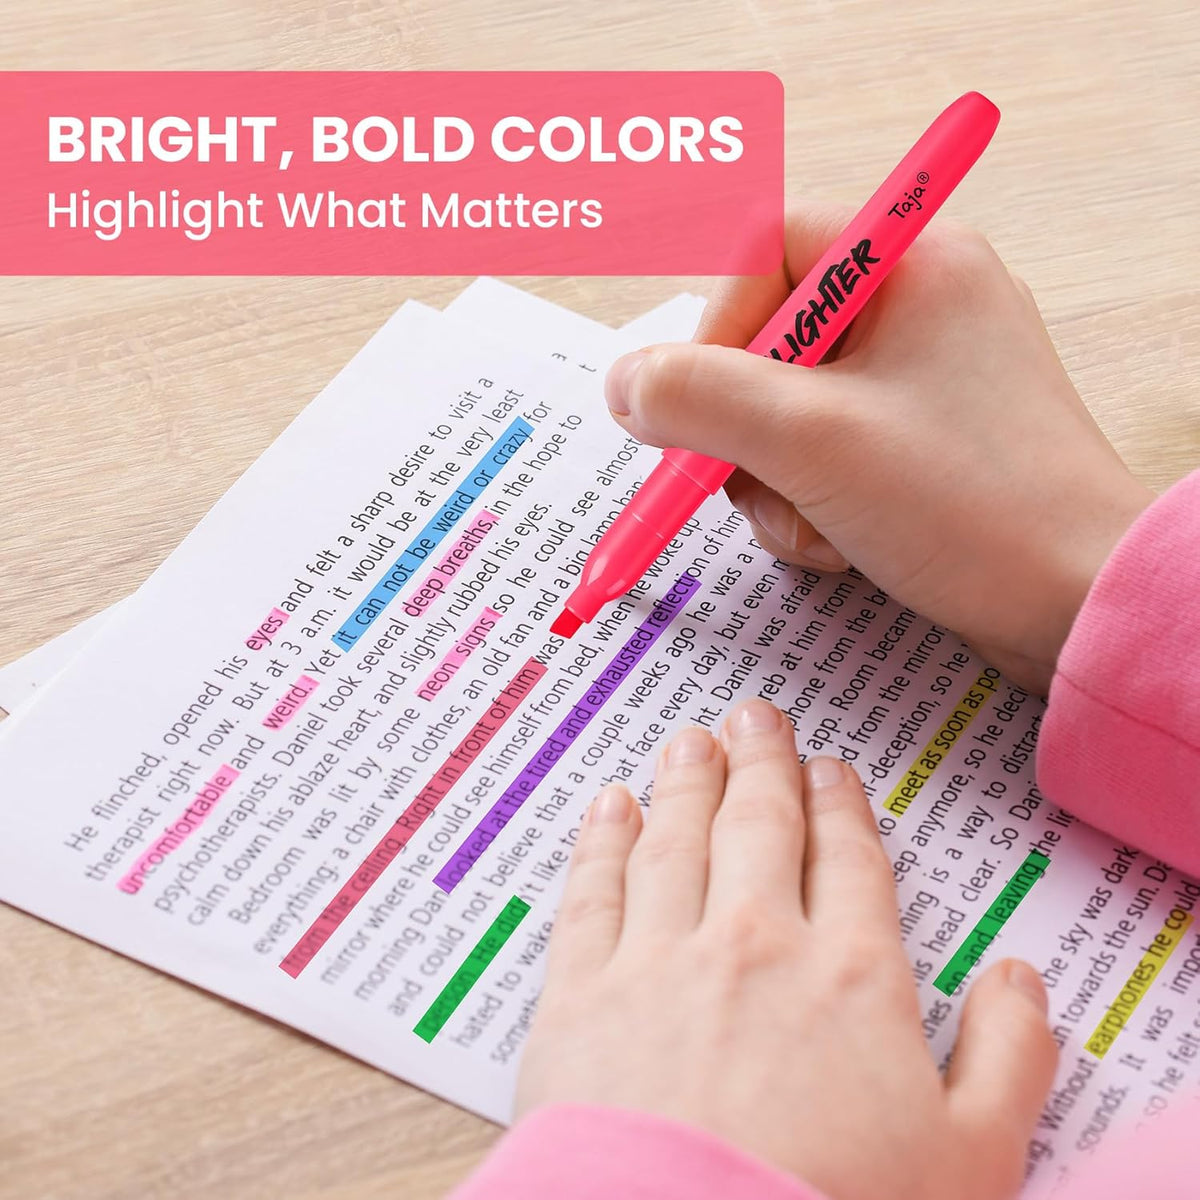 BRIGHT, BOLD COLORS
Highlight What Matters
Taja®
LIGHTER
He flinched, opened his eyes and felt a sharp desire to visit a
therapist right now. But at 3 a.m. it would be at the very least
uncomfortable and weird. Yet it can not be weird or crazy for
psychotherapists. Daniel took several deep breaths, in the hope to
calm down his ablaze heart, and slightly rubbed his eyes.
Bedroom was lit by some neon signs so he could see almost
everything: a chair with clothes, an old fan and a big lamp
from the ceiling. Right in front of him was
mirror where he could see himself from bed, when he woke up
morning Dan looked at the tired and exhausted reflection of him
and could not believe that a couple weeks ago he was a
person. He did 't like to that face every day, but even
hated to wake Daniel was afraid
at him from
phone from the
app. Room becam
from the mirror
-deception, so he
to meet as soon as po
anymore, so he deci
is a way to distrat
his head clear. So Dan
on and leaving the
the sky was dark
towards the sun. Da
Without earphones he could
sounds. It was impo
so he felt